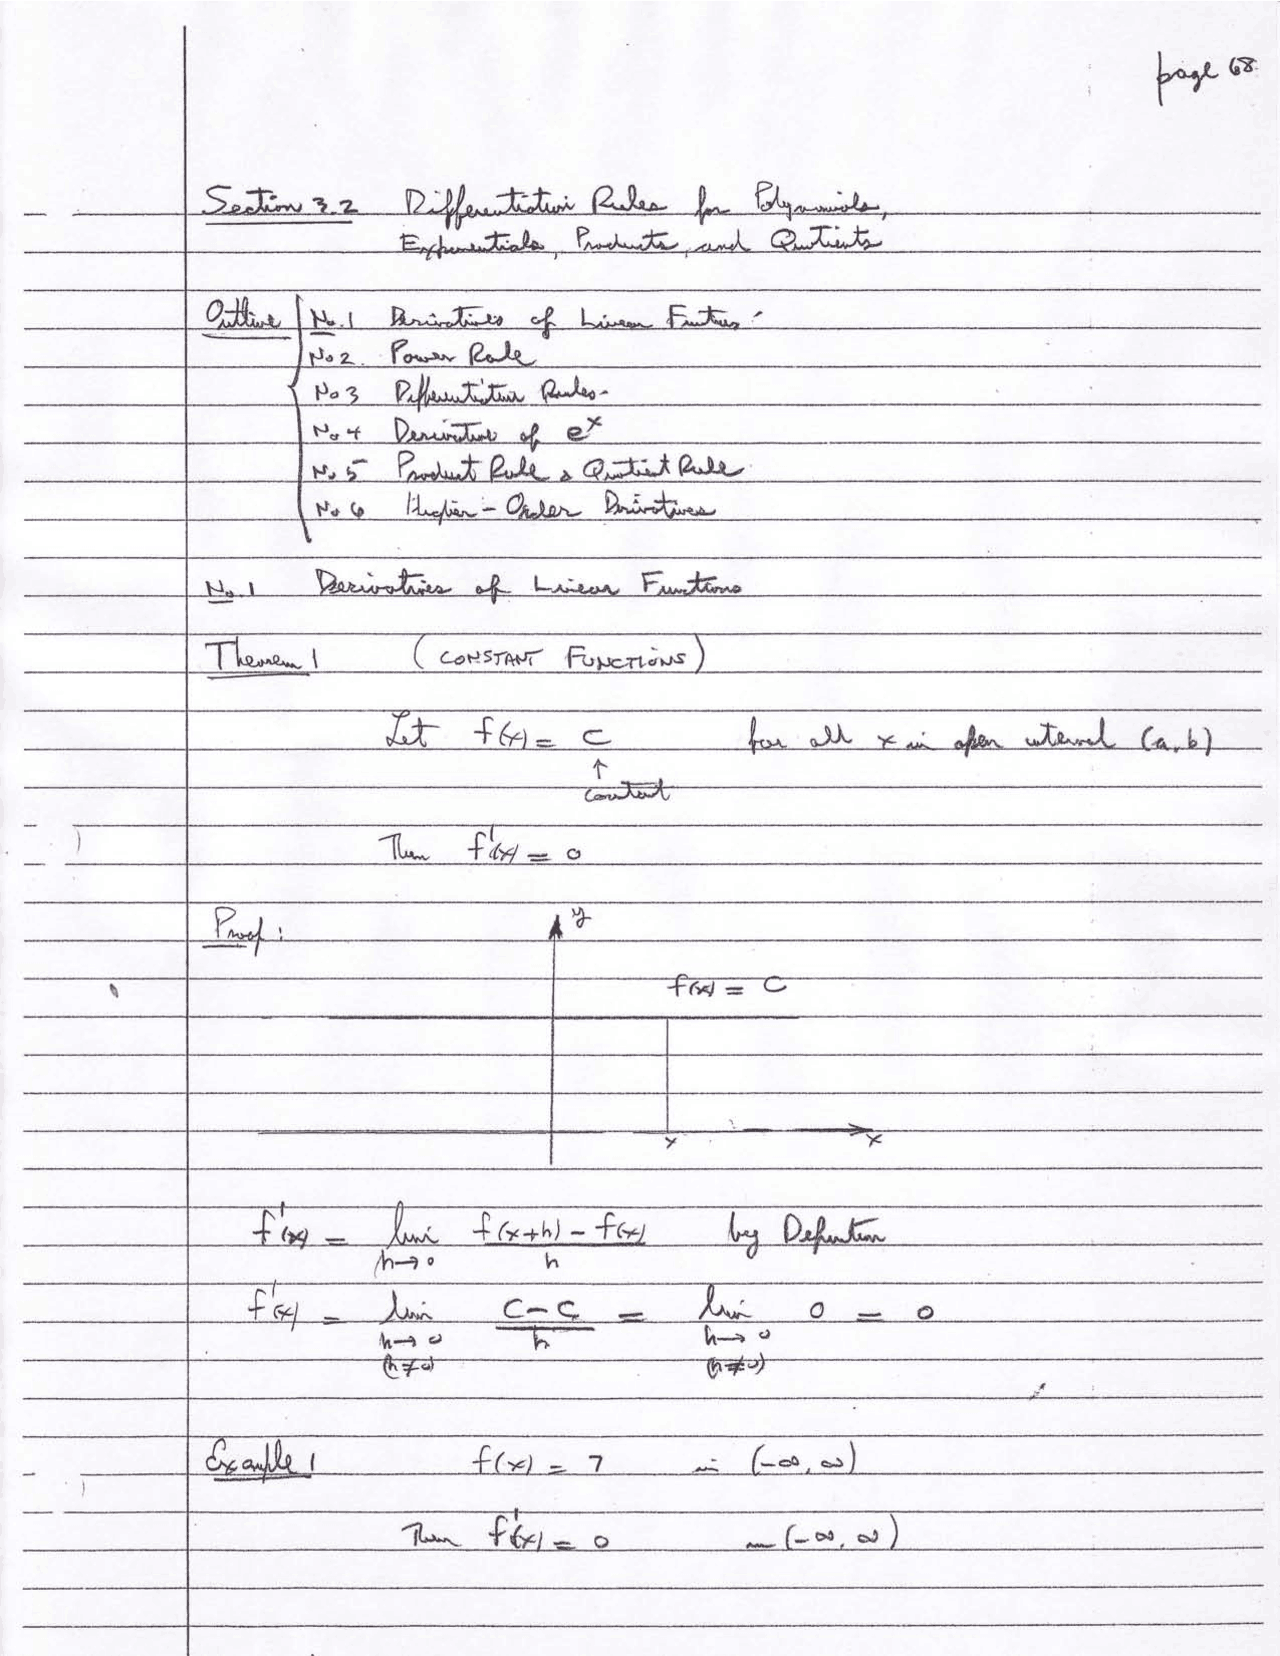 page 68
Section 3.2 Differentiation Rules for Polynomials,
Exponentials, Products, and Quotients
Outline No. 1 Derivatives of Linear Functions
No 2. Power Rule
No 3 Differentiation Rules
No. 4 Derivative of e^x
No. 5 Product Rule & Quotient Rule
No 6 Higher-Order Derivatives
No. 1 Derivatives of Linear Functions
Theorem 1 (CONSTANT FUNCTIONS)
Let f(x) = C for all x in open interval (a, b)
↑
constant
Then f'(x) = 0
Proof:
y
f(x) = C
x x
f'(x) = lim f(x+h) - f(x) by Definition
h→0 h
f'(x) = lim C - C = lim 0 = 0
h→0 h h→0
(h≠0) (h≠0)
Example 1 f(x) = 7 in (-∞, ∞)
Then f'(x) = 0 in (-∞, ∞)